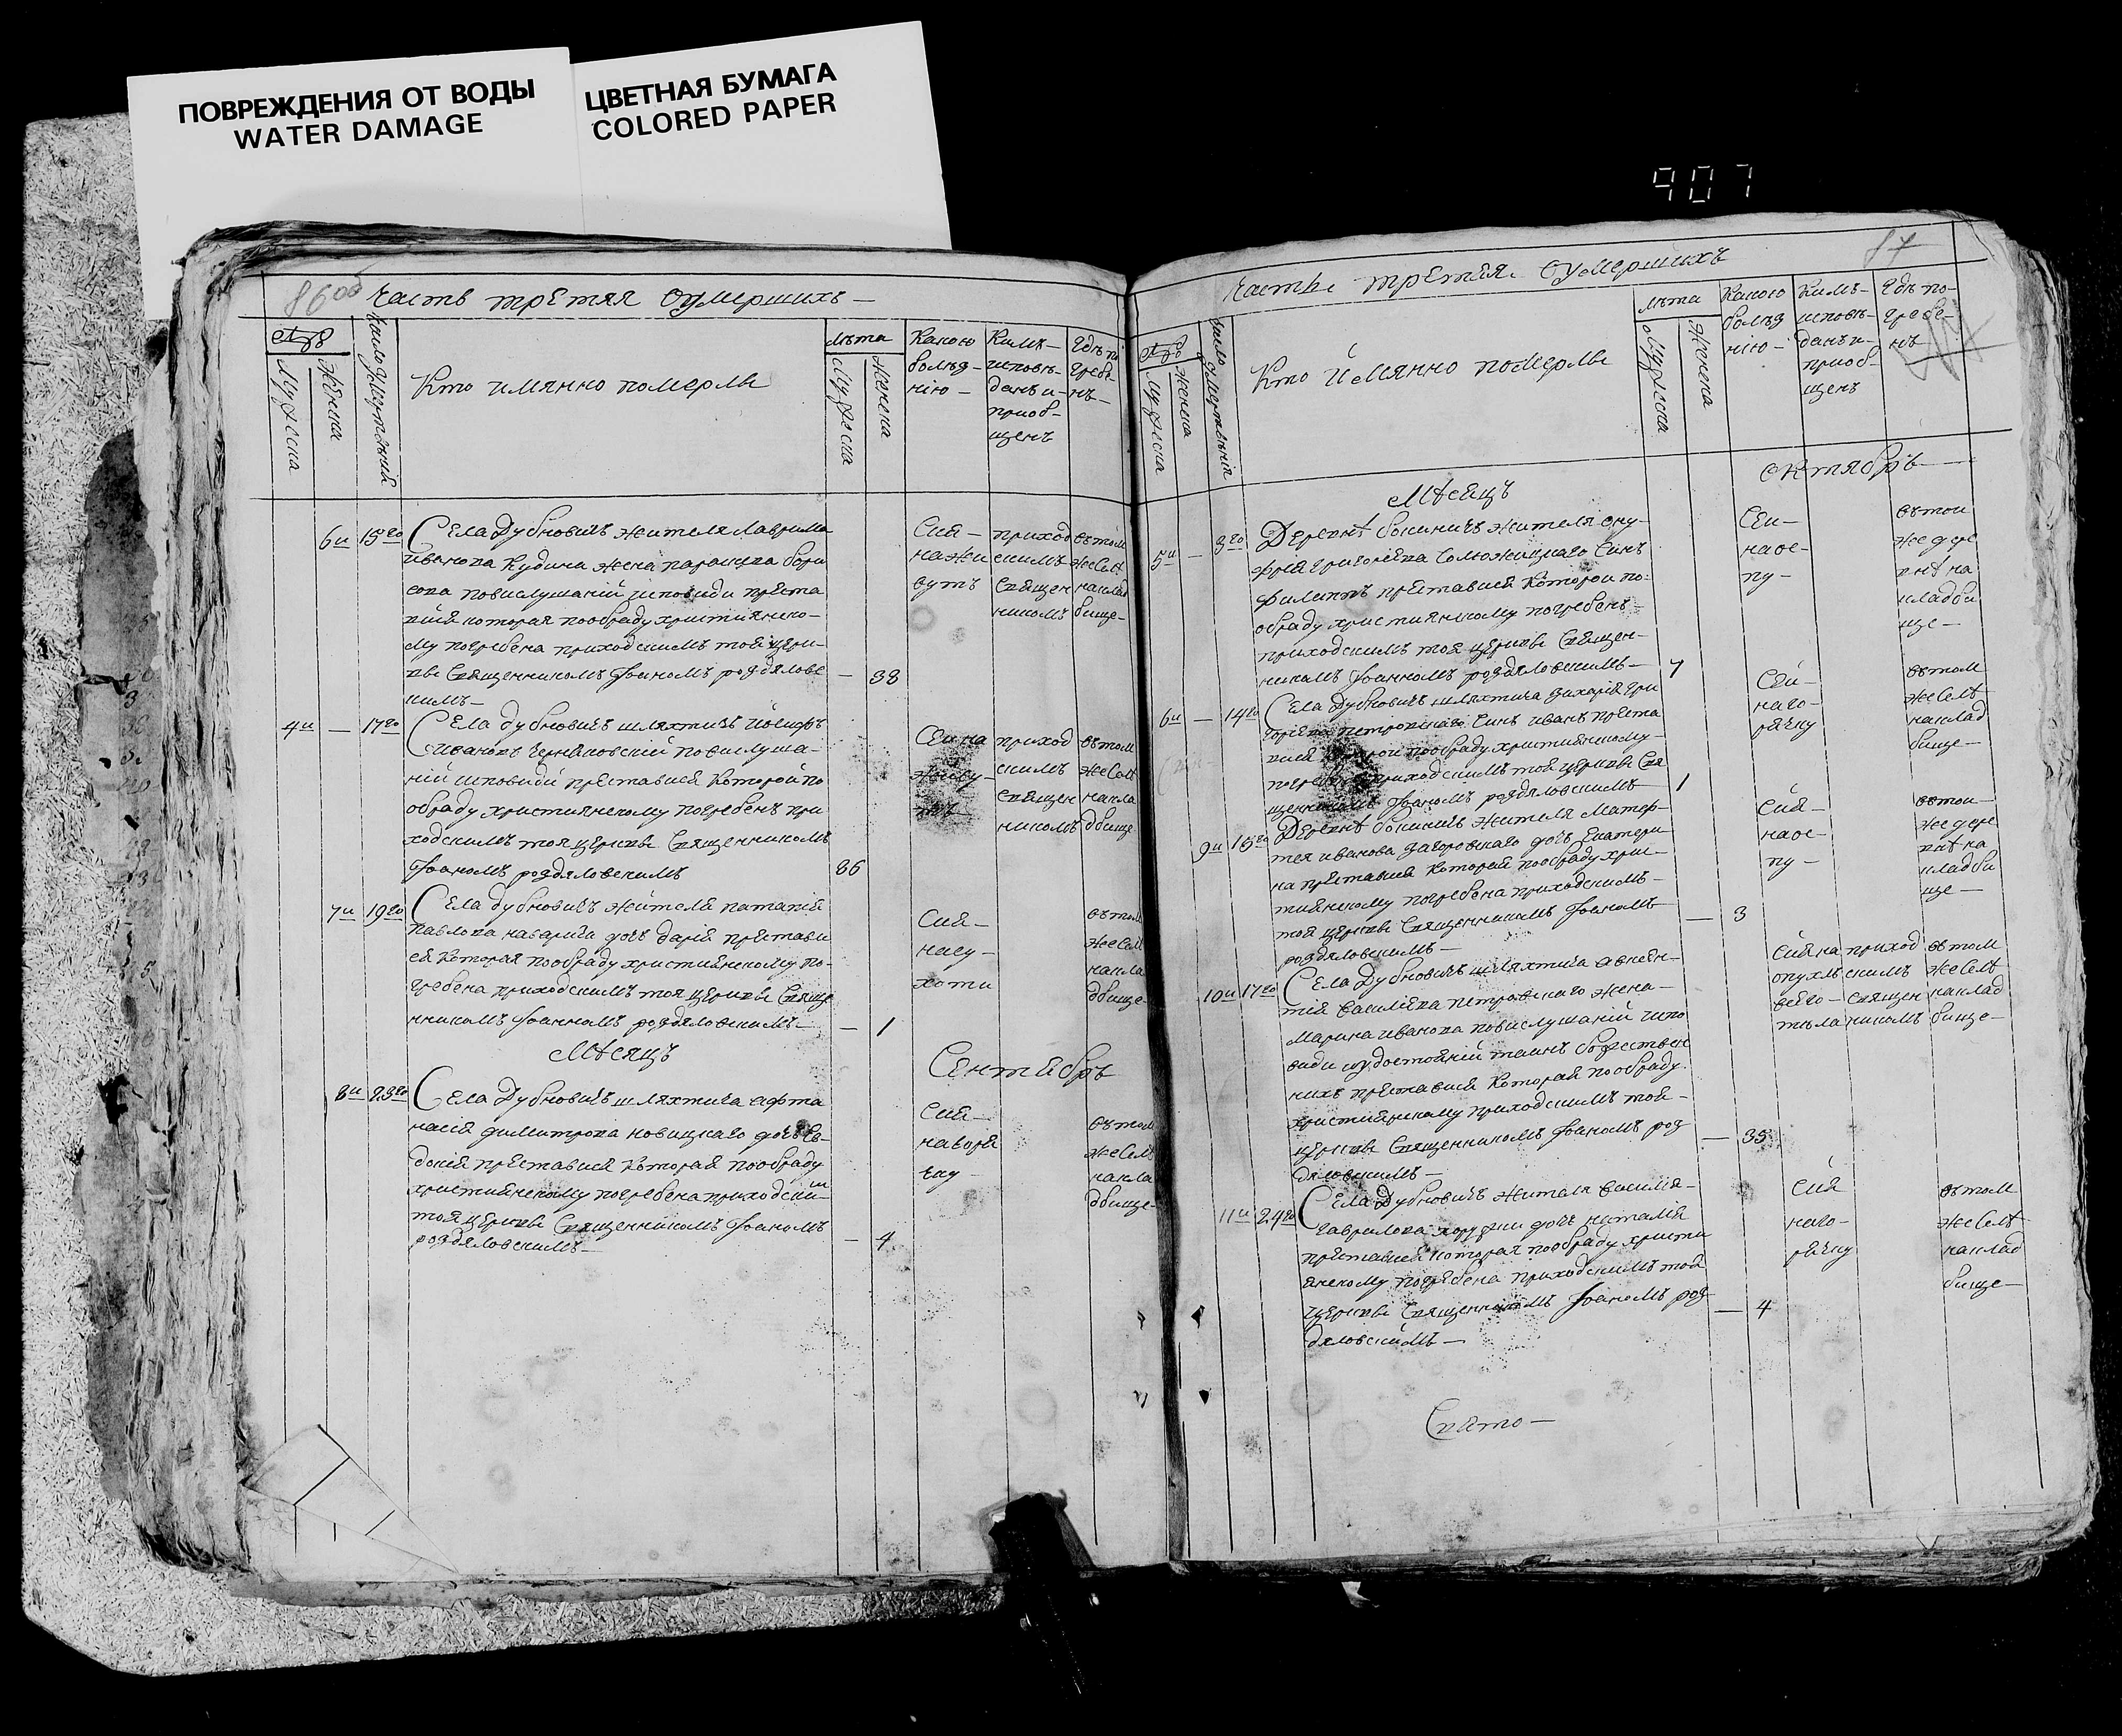 ПОВРЕЖДЕНИЯ ОТ ВОДЫ
WATER DAMAGE
ЦВЕТНАЯ БУМАГА
COLORED PAPER
907
86об
Часть третяя оумершихъ
Мужеска
Женска
Число
Кто имянно померлъ
лѣта
Мужеска
Женска
Какою
болѣз-
нію
Кимъ
исповѣ-
данъ и
приоб-
щенъ
Гдѣ по
гребе-
нъ
6й 15го Села Дубновичъ жителя
Иванова Кудина жена параскева бори
сова повислушаній исповиди преста
вися которая пообраду християнско-
му погребена приходскимъ тоя церк-
ве Священникомъ Іоаномъ роздяловс — 38
кимъ
Сия
на жи
вутъ
приход
скимъ
Священ
никомъ
втом
же селѣ
наклад
бище
4й — 17го Села дубновичъ шляхтичъ Иосифъ
Ивановъ повислуша-
ній исповиди преставися которой по
обраду християнскому погребенъ при
ходскимъ тоя церкве Священникомъ
Іоаномъ роздяловскимъ 86
Сей на
приход
скимъ
Священ
никомъ
втом
же селѣ
накла
дбище
7й 19го Села дубновичъ жителя
Павлова дочь Дария престави
ся которая пообраду християнскому по-
гребена приходскимъ тоя церкве Свяще
нникомъ Іоанномъ роздяловскимъ — 1
Сия
насу-
хоти
втом
же селѣ
накла
дбище
Мѣсяцъ Сентябръ
8й 23го Села Дубновичъ шляхтича Афта
насія димитрова новицкаго дочь Ев-
докія преставися которая пообраду
християнскому погребена приходским
тоя церкве Священникомъ Іоаномъ
роздяловскимъ — 4
Сия
втом
же селѣ
накла
дбище
87
Часть третяя оумершихъ
Мужеска
Женска
Число
Кто Имянно померлъ
лѣта
Мужеска
Женска
Какою
болѣз
нію
Кимъ
исповѣ-
данъ и
приоб-
щенъ
Гдѣ по-
гребе-
нъ
Мѣсяцъ Октябръ
5й — 3го Деревнѣ бокиничъ жителя ону-
фрія григоріева Синъ
филиппъ преставися которои по-
обраду християнскому погребенъ
приходскимъ тоя церкве Священ-
никомъ Іоанномъ роздяловскимъ 7
Сей
наос-
пу
втои
же дере
внѣ на
кладби
ще
6й — 14го Села Дубновичъ шляхтича Захарія гри
горіева петровскаго Синъ иванъ преста
вися которои пообраду християнскому
погребенъ приходскимъ тоя церкве Свя
щенникомъ Іоаномъ роздяловскимъ 1
Сей
наго-
рячку
втом
же селѣ
наклад
бище
9й 15го Деревнѣ бокиничъ жителя Матѳ-
тея иванова Загоровскаго дочь Екатери
на преставися которая пообраду хри-
стиянскому погребена приходскимъ
тоя церкве Священникомъ Іоаномъ
роздяловскимъ — 3
Сия
наос-
пу
втои
же дере
внѣ на
кладби
ще
10й 17го Села Дубновичъ шляхтича
Василіева петровскаго жена
Марина иванова повислушаній испо
види иудостояній таинъ божествен
нихъ преставися которая пообраду
християнскому приходскимъ тоя
церкве Священникомъ Іоаномъ роз — 35
дяловскимъ
Сия на
опухлъ
всего
тѣла
приход
скимъ
священ
никомъ
втом
же селѣ
наклад
бище
11й 24го Села Дубновичъ жителя Василія
гаврилова дочь наталія
преставися которая пообраду христи
янскому погребена приходскимъ тоя
церкве Священникомъ Іоаномъ роз — 4
дяловскимъ
Сия
наго-
рячку
втом
же селѣ
наклад
бище